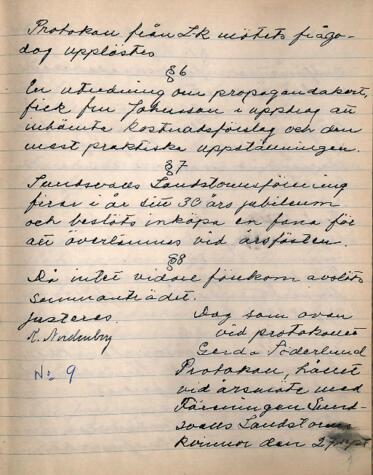 Protokoll från L-k mötets frågo-
dag upplästes
§6
En utredning om propagandakort,
fick fru Johnsson i uppdrag att
inhämta kostnadsförslag och den
mest praktiska uppställningen.
§7
Sundsvalls Landstormsförening
firar i år sitt 30 års jubileum
och beslöts inköpa en fana för
att överlämnas vid årsfesten.
§8
Då intet vidare förekom avslöts
sammanträdet.
Justeras.
K. Nordenberg
Dag som ovan
vid protokollet
Gerda Söderlund
No 9
Protokoll, hållet
vid årsmöte med
Föreningen Sund-
svalls Landstorms
kvinnor den 2